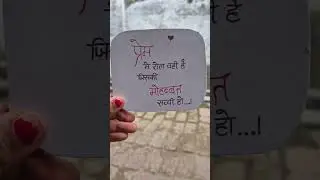 प्रेम
में रोता वही है
जिसकी
मोहब्बत
सच्ची हो...!